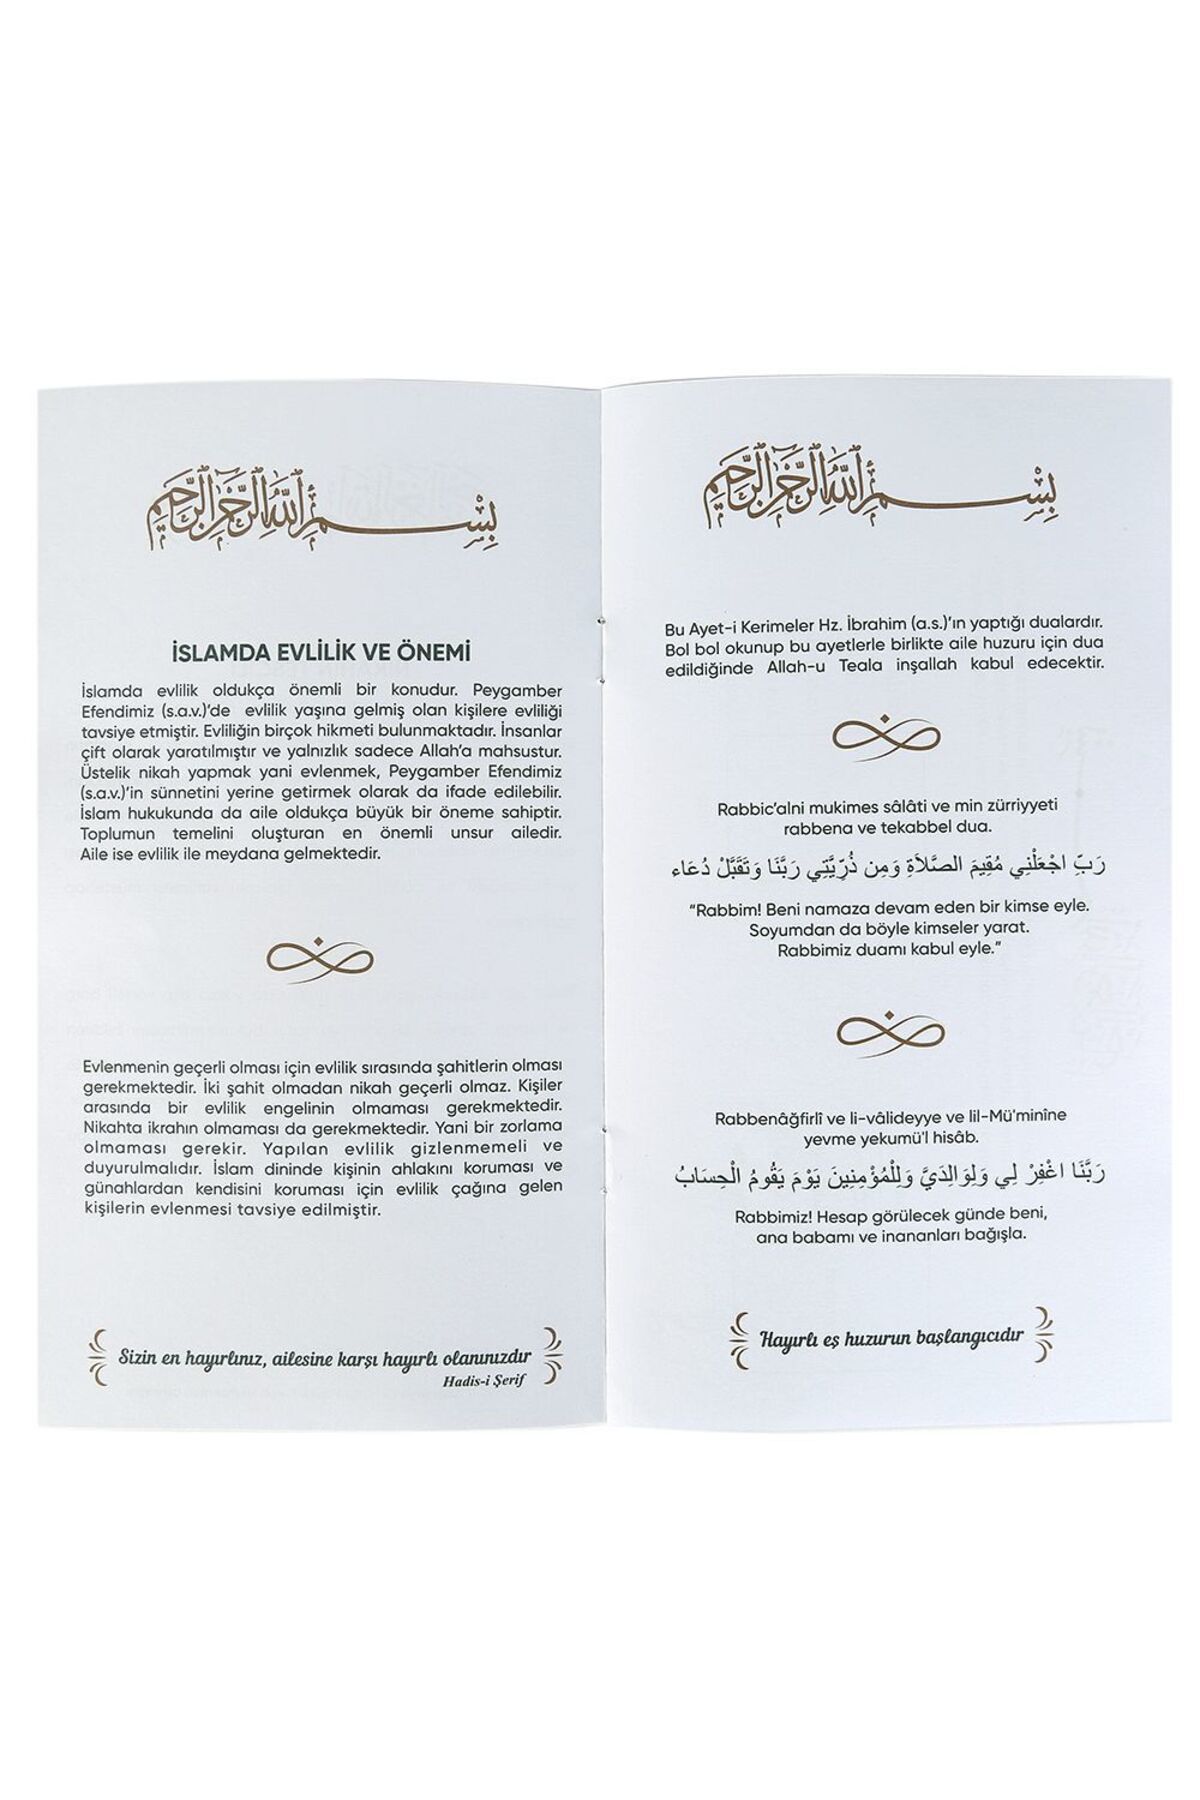 بسم الله الرحمن الرحيم
İSLAMDA EVLİLİK VE ÖNEMİ
İslamda evlilik oldukça önemli bir konudur. Peygamber
Efendimiz (s.a.v.)'de evlilik yaşına gelmiş olan kişilere evliliği
tavsiye etmiştir. Evliliğin birçok hikmeti bulunmaktadır. İnsanlar
çift olarak yaratılmıştır ve yalnızlık sadece Allah'a mahsustur.
Üstelik nikah yapmak yani evlenmek, Peygamber Efendimiz
(s.a.v.)'in sünnetini yerine getirmek olarak da ifade edilebilir.
İslam hukukunda da aile oldukça büyük bir öneme sahiptir.
Toplumun temelini oluşturan en önemli unsur ailedir.
Aile ise evlilik ile meydana gelmektedir.
Evlenmenin geçerli olması için evlilik sırasında şahitlerin olması
gerekmektedir. İki şahit olmadan nikah geçerli olmaz. Kişiler
arasında bir evlilik engelinin olmaması gerekmektedir.
Nikahta ikrahın olmaması da gerekmektedir. Yani bir zorlama
olmaması gerekir. Yapılan evlilik gizlenmemeli ve
duyurulmalıdır. İslam dininde kişinin ahlakını koruması ve
günahlardan kendisini koruması için evlilik çağına gelen
kişilerin evlenmesi tavsiye edilmiştir.
Sizin en hayırlınız, ailesine karşı hayırlı olanınızdır
Hadis-i Şerif
بسم الله الرحمن الرحيم
Bu Ayet-i Kerimeler Hz. İbrahim (a.s.)'ın yaptığı dualardır.
Bol bol okunup bu ayetlerle birlikte aile huzuru için dua
edildiğinde Allah-u Teala inşallah kabul edecektir.
Rabbic'alni mukimes sâlâti ve min zürriyyeti
rabbena ve tekabbel dua.
رَبِّ اجْعَلْنِي مُقِيمَ الصَّلَاةِ وَمِن ذُرِّيَّتِي رَبَّنَا وَتَقَبَّلْ دُعَاء
“Rabbim! Beni namaza devam eden bir kimse eyle.
Soyumdan da böyle kimseler yarat.
Rabbimiz duamı kabul eyle.”
Rabbenâğfirlî ve li-vâlideyye ve lil-Mü'minîne
yevme yekumü'l hisâb.
رَبَّنَا اغْفِرْ لِي وَلِوَالِدَيَّ وَلِلْمُؤْمِنِينَ يَوْمَ يَقُومُ الْحِسَابُ
Rabbimiz! Hesap görülecek günde beni,
ana babamı ve inananları bağışla.
Hayırlı eş huzurun başlangıcıdır